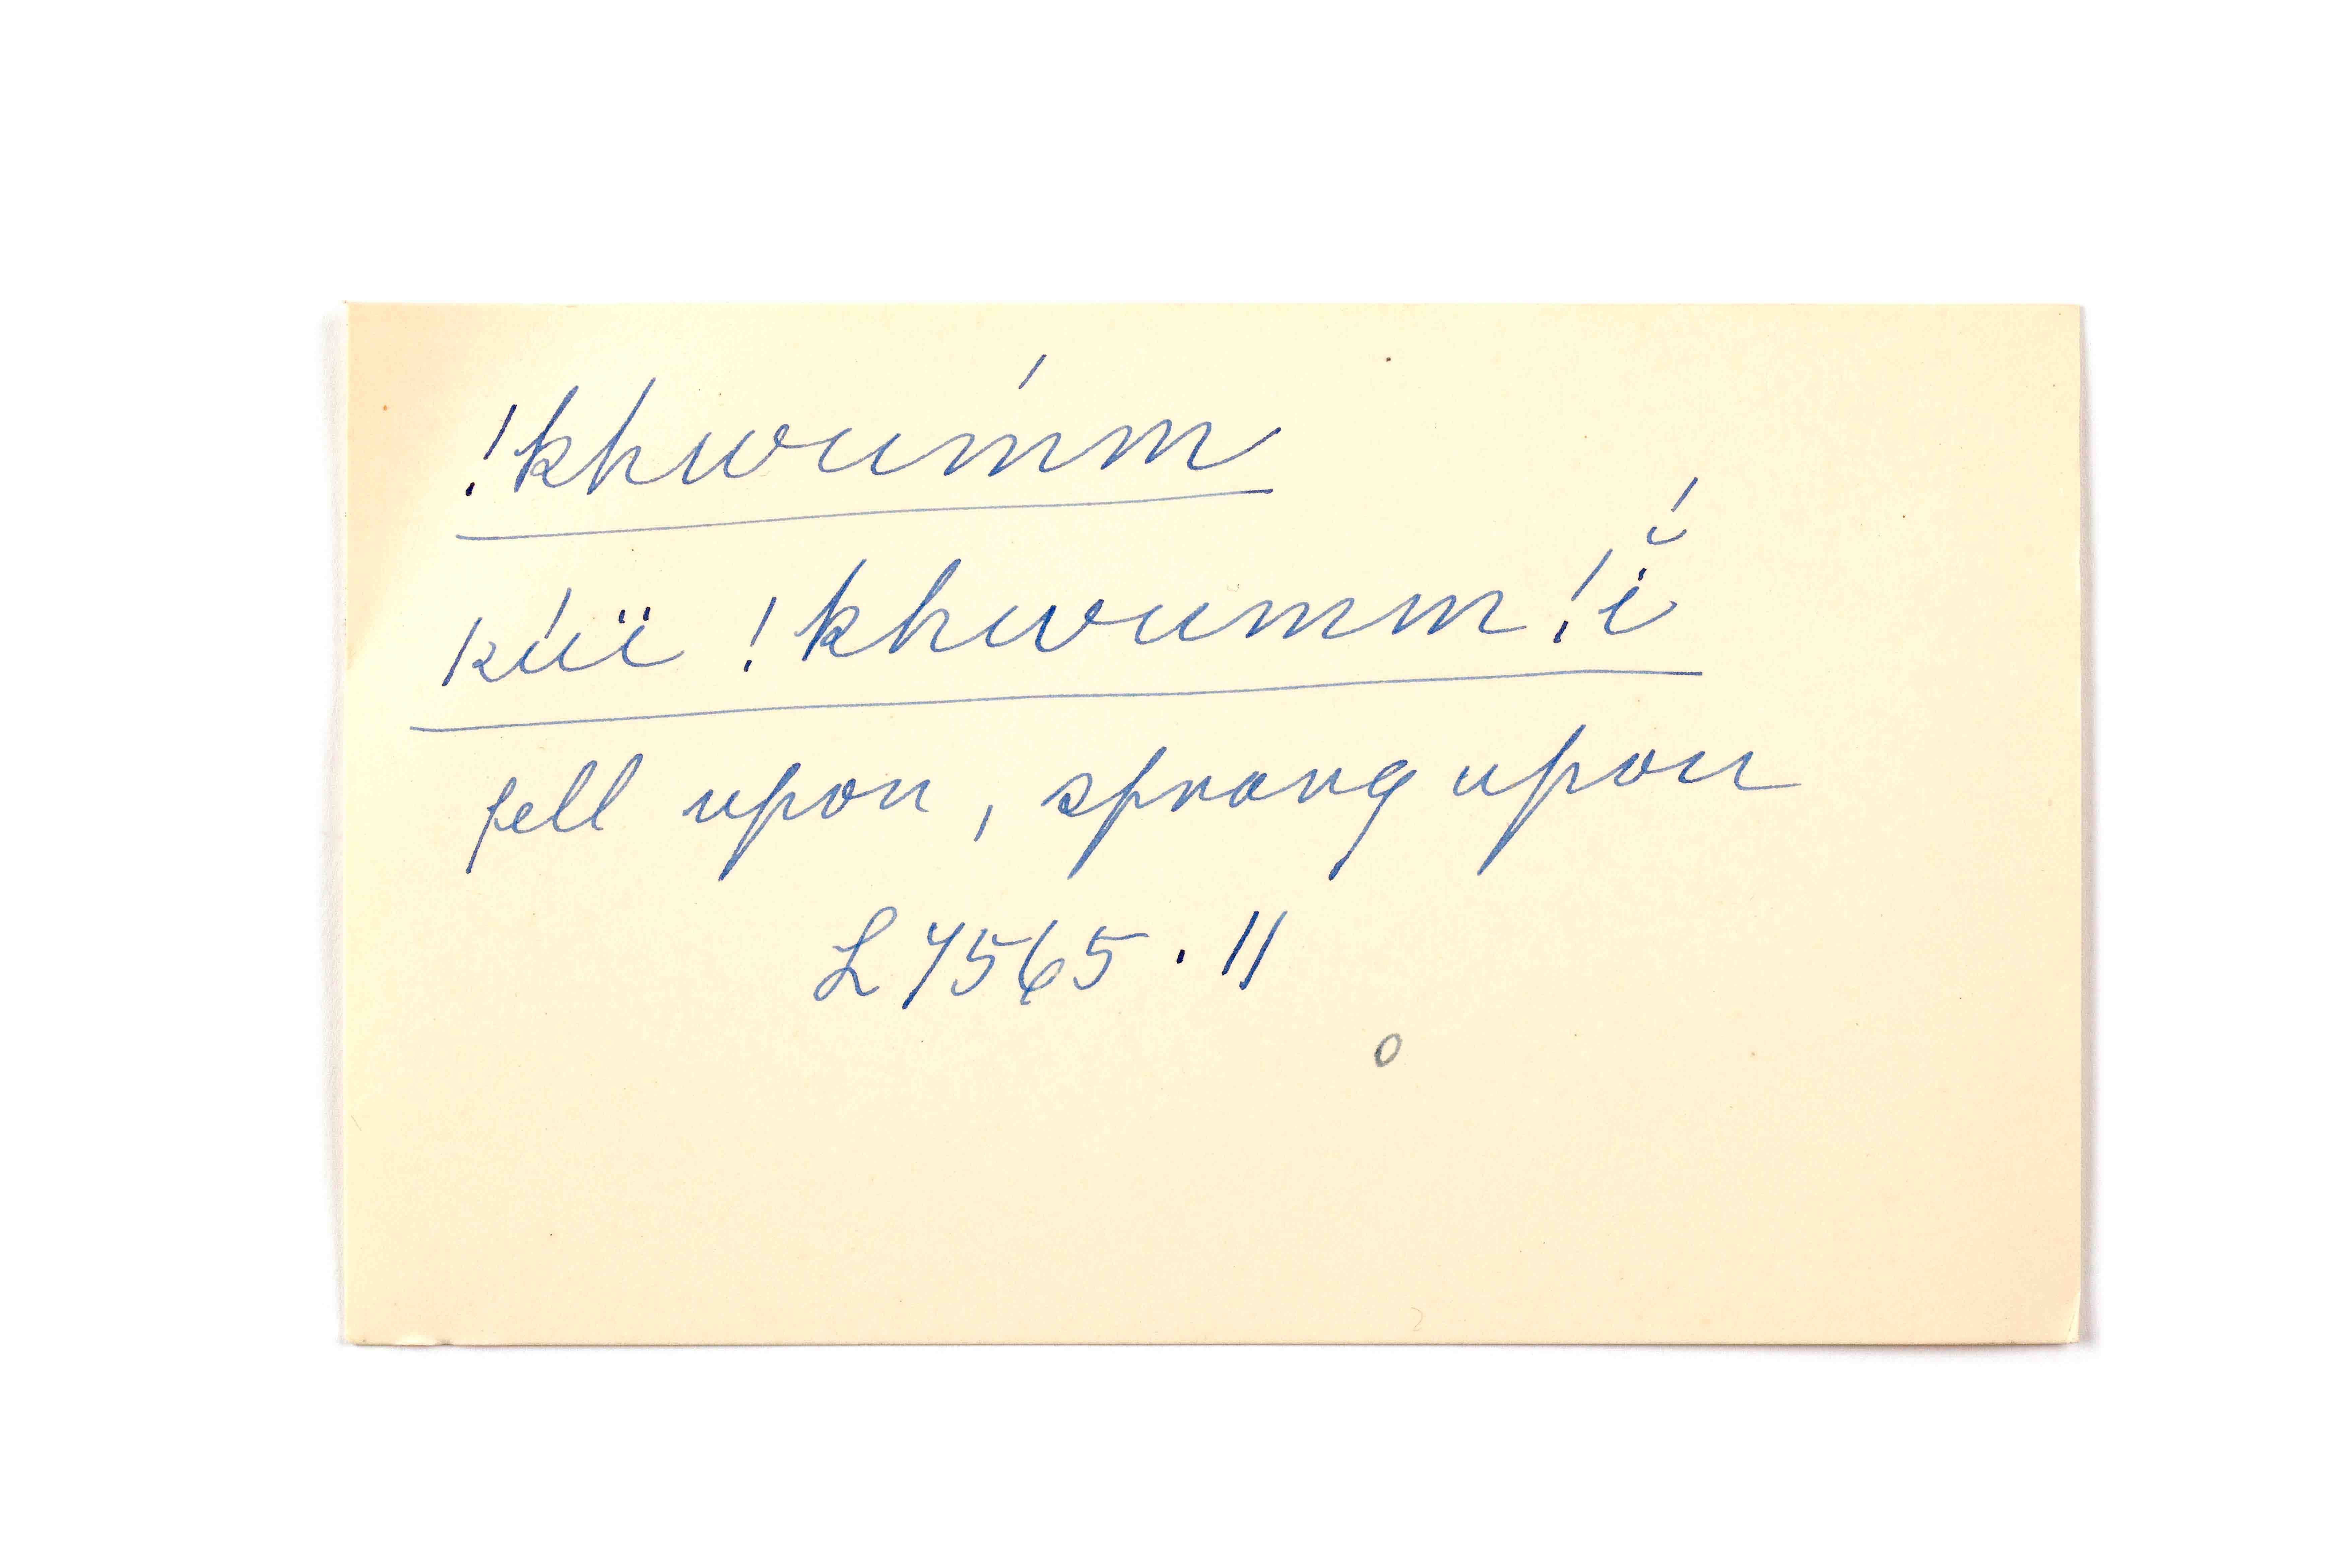 !khwumḿ
kúï !khwumm !ĭ́
fell upon, sprang upon
L 7565 . 11
o